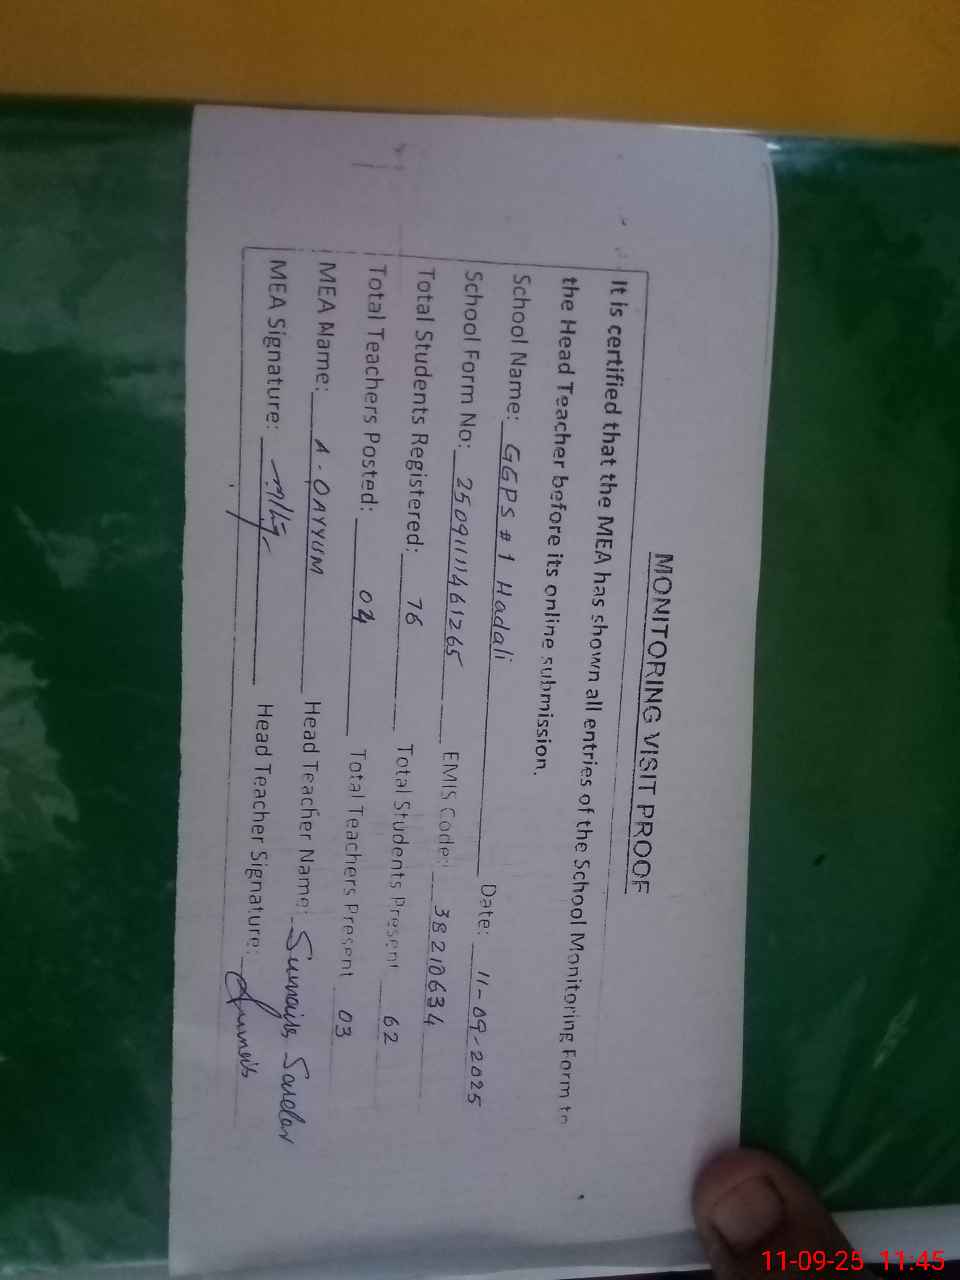 MONITORING VISIT PROOF
It is certified that the MEA has shown all entries of the School Monitoring Form to
the Head Teacher before its online submission.
School Name: GGPS # 1 Hadali Date: 11-09-2025
School Form No: 2509111461265 EMIS Code: 38210634
Total Students Registered: 76 Total Students Present 62
Total Teachers Posted: 04 Total Teachers Present 03
MEA Name: A. QAYYUM Head Teacher Name: Sumaira Sardar
MEA Signature: Head Teacher Signature:
11-09-25 11:45